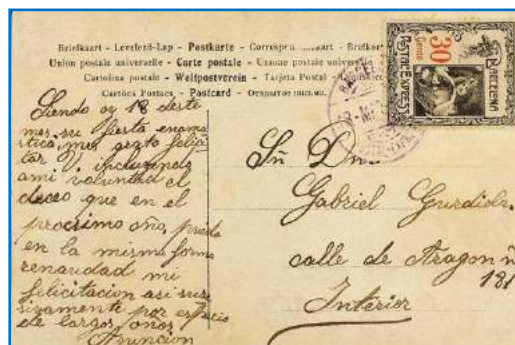 Briefkaart - Levelező-Lap - Postkarte - Correspo - Brefkort
Union postale universelle - Carte postale - Unione postale universale
Cartolina postale - Weltpostverein - Tarjeta Postal
Cartões Postaes - Postcard - Открытое письмо.
BARCELONA
POSTAL EXPRESS
30
Centº
Siendo oy 18 deste
mes su fiesta onomastica
tica, mes grato felici
tar V. incluiendo
ami voluntad el
deceo que en el
procsimo año, pueda
en la misma forma
renaudad mi
felicitacion asi suse
sivamente por espacio
de largos años
Asuncion
Sñ Dn
Gabriel Gurdiola
calle de Aragon nº
181
Interior